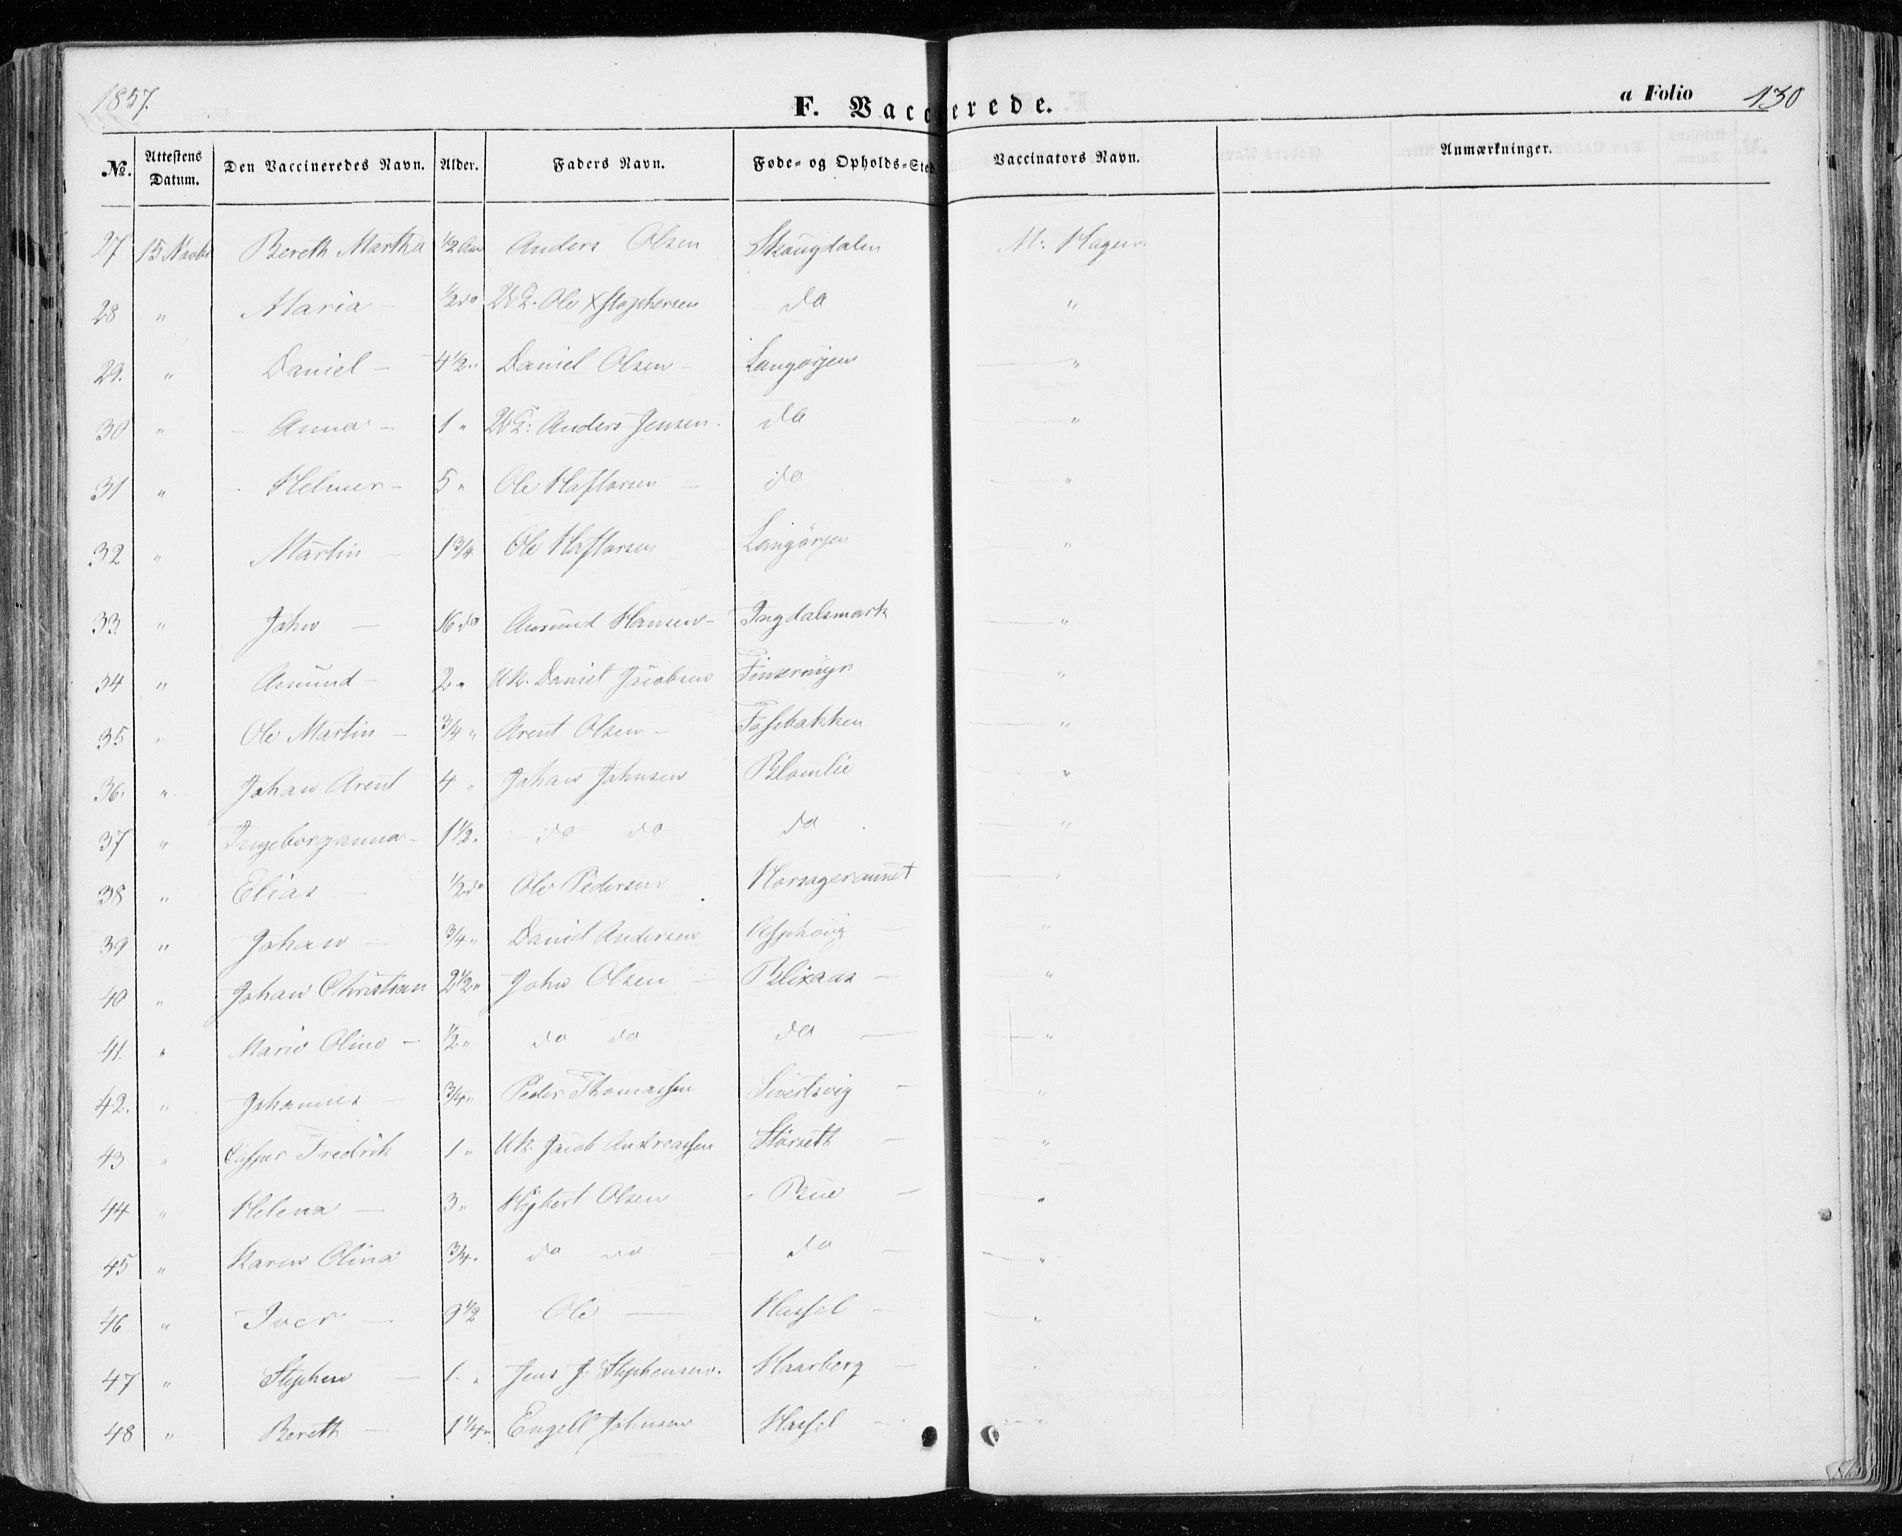 1857.
F. Vaccinerede.
a Folio 130
No. Attestens Datum. Den Vaccineredes Navn. Alder. Faders Navn. Føde- og Opholds-Sted. Vaccinators Navn. Anmærkninger.
27 15 Novbr Bereth Martha 1/2 Aar Anders Olsen Skaugdalen M. Hagen
28 " Maria - 1/2 do Ole do "
29. " Daniel - 4 1/2 " Daniel Olsen - Langørjen "
30 " - Anna - 1 " Anders Jensen. do "
31 " - Helmer - 5 " Ole Haftorsen - do "
32 " Martin - 1 3/4 Ole Haftorsen Langørjen "
33. " John - 16 do Amund Hansen - Ingdalsmark "
34 " Amund - 2 " Daniel Jacobsen "
35 " Ole Martin - 3/4 " Arent Olsen - "
36. " Johan Arent 4 " Johan Johnsen Blomlie "
37 " Ingeborganna - 1 1/2 " - do do do "
38 " Elias - 1/2 do Ole Pedersen "
39 " Johan - 3/4 " Daniel Andersen "
40 " Johan Christian 2 1/2 " John Olsen - Blixaas - "
41. " Marie Oline - 1/2 " do do do - "
42. " Johannes - 3/4 " Peder Thomassen Sivertsvig - "
43 " Fredrik 1 " Jacob Andreassen Størseth - "
44 " Helena - 3 " Olsen - Bue - "
45 " Karen Olina 3/4 " do do - do - "
46 " Iver - 9 1/2 Ole - Hassel - "
47 " Stephen - 1 " Jens J. Stephensen. Haarberg - "
48 " Bereth - 1 1/4 " Engell Johnsen Hassel - "